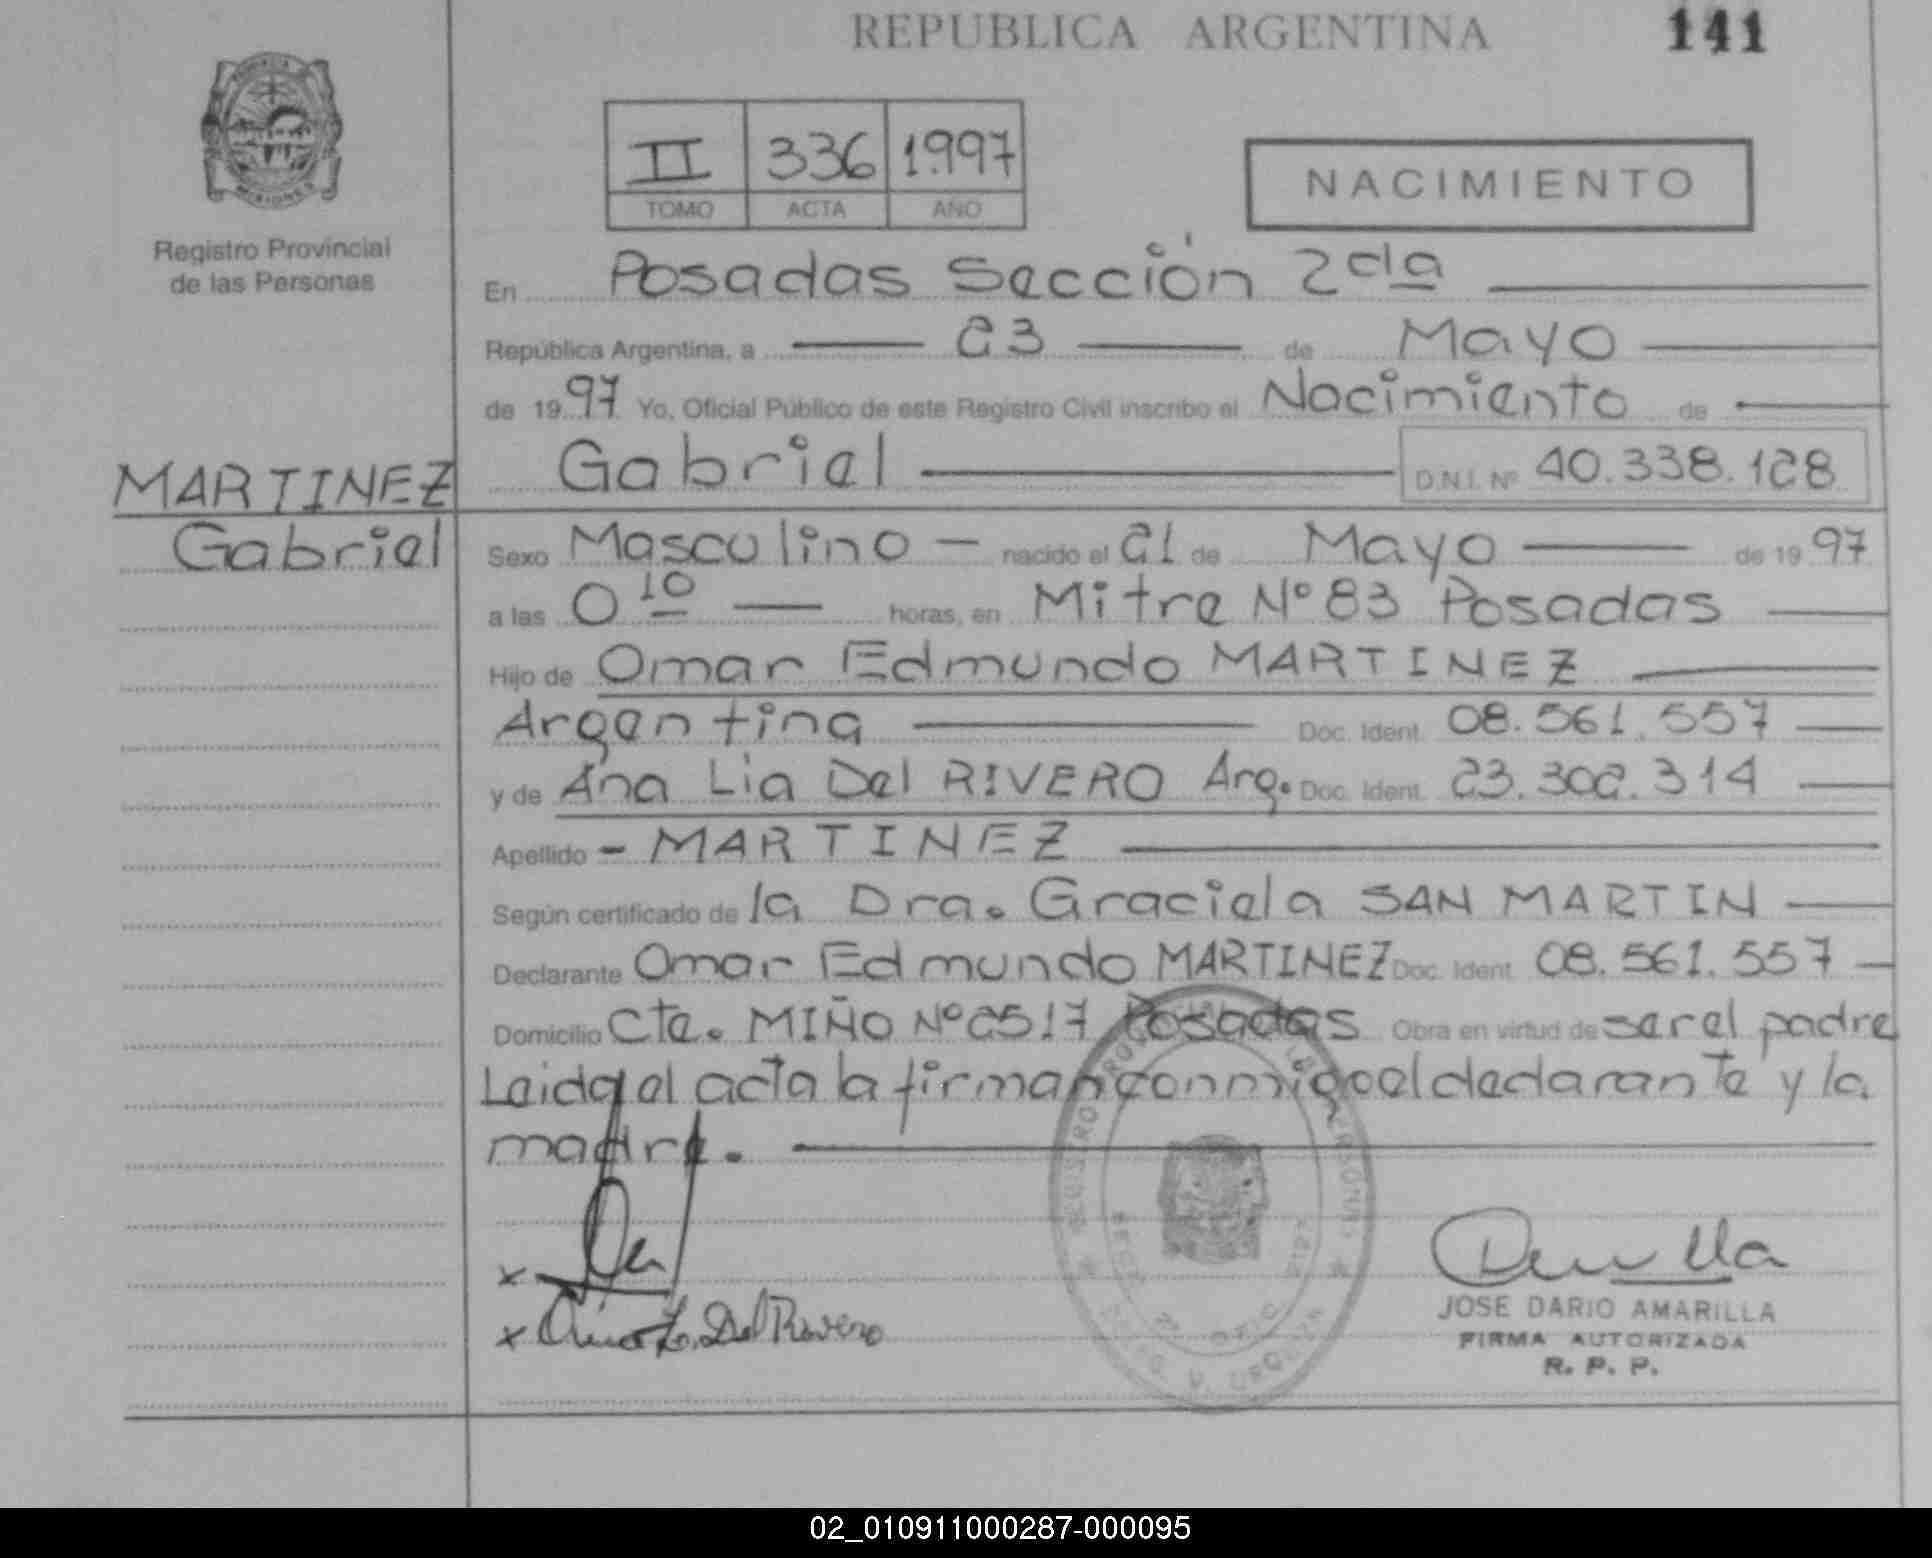 REPUBLICA ARGENTINA
141
Registro Provincial
de las Personas
II 336 1.997
TOMO ACTA AÑO
NACIMIENTO
En Posadas Sección 2da
República Argentina, a 23 de Mayo
de 1997 Yo, Oficial Público de este Registro Civil inscribo el Nacimiento de
Gabriel D.N.I. Nº 40.338.128
MARTINEZ
Gabriel
Sexo Masculino - nacido el 21 de Mayo de 1997
a las 0 10 horas, en Mitre Nº 83 Posadas
Hijo de Omar Edmundo MARTINEZ
Argentina Doc. Ident. 08.561.557
y de Ana Lia Del RIVERO Arg. Doc. Ident. 23.302.314
Apellido - MARTINEZ
Según certificado de la Dra. Graciela SAN MARTIN
Declarante Omar Edmundo MARTINEZ Doc. Ident. 08.561.557
Domicilio Cte. MIÑO Nº 2517 Posadas Obra en virtud de ser el padre
Leida el acta la firman conmigo el declarante y la
madre.
x
x Ana L. Del Rivero
JOSE DARIO AMARILLA
FIRMA AUTORIZADA
R. P. P.
02_010911000287-000095